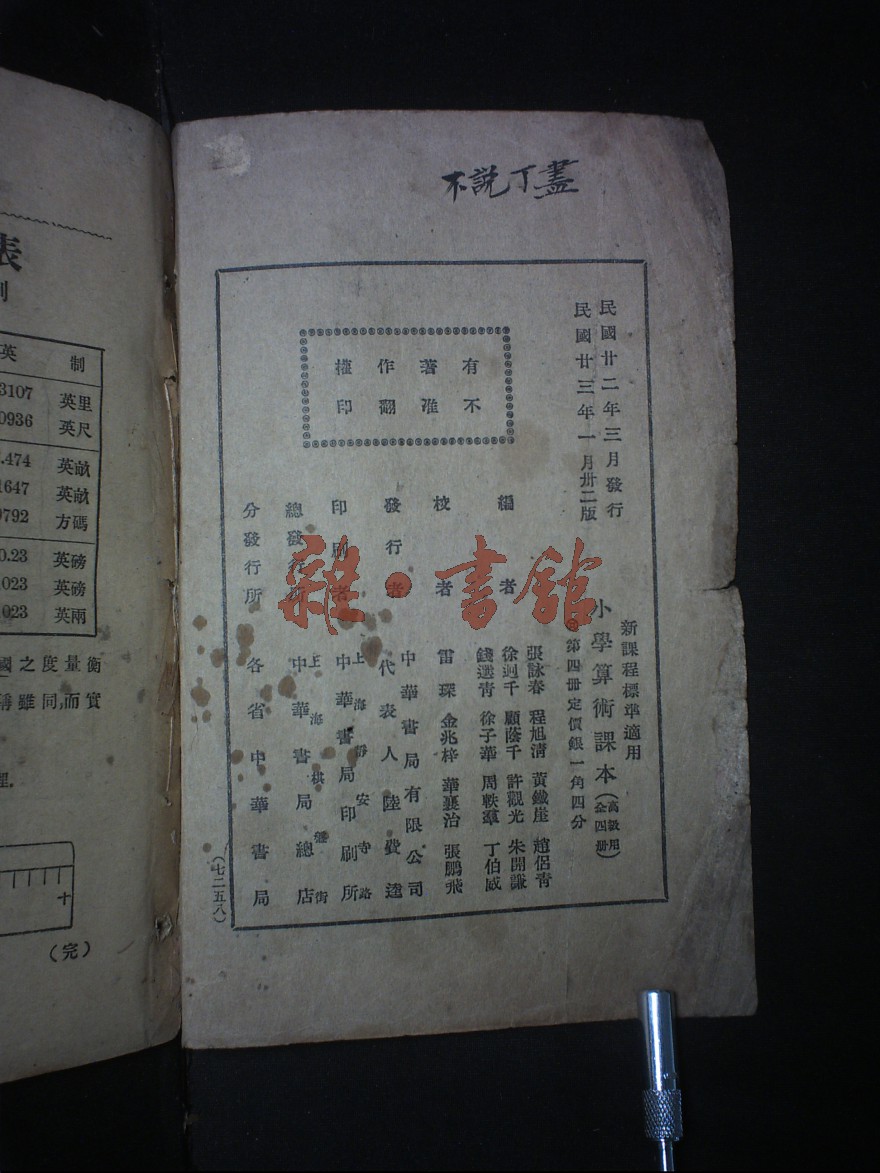 不説丁盡
民國廿二年三月發行
民國廿三年一月卅二版
有著作權
不准翻印
新課程標準適用
小學算術課本(高級用 全四冊)
第四冊定價銀一角四分
編者
張詠春 程旭清 黃鐵崖 趙侶青
徐迥千 顧蔭千 許觀光 朱開謙
錢選青 徐子華 周軼羣 丁伯威
校者
雷琛 金兆梓 華襄治 張鵬飛
發行者
中華書局有限公司
代表人陸費逵
印刷者
上海靜安寺路
中華書局印刷所
總發行所
上海棋盤街
中華書局總店
分發行所
各省中華書局
(七二五八)
雜·書館
表
制
英 制
3107 英里
0936 英尺
.474 英畝
1647 英畝
0792 方碼
0.23 英磅
.023 英磅
.023 英兩
衡量度之國
實而同雖稱
十
(完)